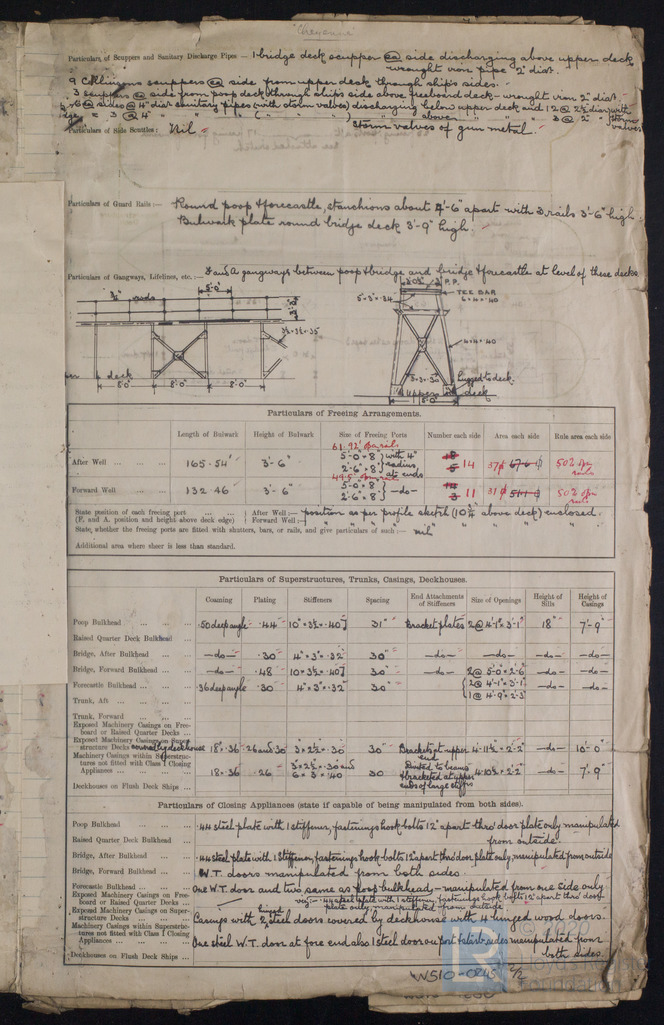 "Cheyenne"
Particulars of Scuppers and Sanitary Discharge Pipes — 1 bridge deck scupper @ side discharging above upper deck
wrought iron pipe 2" dia.
9 scuppers @ side from upper deck through ship's sides.
3 scuppers @ side from poop deck through ship's side above freeboard deck - wrought iron 2" dia.
6 @ sides @ 4" dia. sanitary pipes (with storm valves) discharging below upper deck and 12 @ 2½" dia. with
3 @ 4" " " ( " " ) " above " " 3 @ 2" " storm valves
Particulars of Side Scuttles: Nil
Storm valves of gun metal.
Particulars of Guard Rails :— Round poop & forecastle, stanchions about 4'-6" apart with 3 rails 3'-6" high.
Bulwark plate round bridge deck 3'-9" high.
Particulars of Gangways, Lifelines, etc. :— F and A gangways between poop & bridge and bridge & forecastle at level of these decks.
5'-0" P.P.
TEE BAR
6 × 4 × .40
5 × 3 × .34
3½ × 3½ × .35
4 × 4 × .40
5 × 3 × .30
lugged to deck
deck 8'-0" 8'-0" 8'-0"
Upper deck
8'-0"
Particulars of Freeing Arrangements.
Length of Bulwark Height of Bulwark Size of Freeing Ports Number each side Area each side Rule area each side
61.92' open rails
After Well 165.54' 3'-6" 5'-0" × 8" 2'-6" × 8" with 4" radius at ends 14 37 50% open rails
49.5' open rails
Forward Well 132.46' 3'-6" 5'-0" × 8" 2'-6" × 8" -do- 11 31 50% open rails
State position of each freeing port (F. and A. position and height above deck edge) After Well :— position as per profile sketch (10¾" above deck) enclosed.
Forward Well :— " " " " " " "
State whether the freeing ports are fitted with shutters, bars, or rails, and give particulars of such :— nil
Additional area where sheer is less than standard.
Particulars of Superstructures, Trunks, Casings, Deckhouses.
Coaming Plating Stiffeners Spacing End Attachments of Stiffeners Size of Openings Height of Sills Height of Casings
Poop Bulkhead .50 deep angle .44 10" × 3½ × .40 31" Bracket plates 2 @ 4'-1" × 3'-1" 18" 7'-9"
Raised Quarter Deck Bulkhead
Bridge, After Bulkhead -do- .30 4" × 3" × .32 30" -do- -do- -do- -do-
Bridge, Forward Bulkhead -do- .48 10 × 3½ × .40 30" -do- 2 @ 5'-0" × 2'-6" -do- -do-
Forecastle Bulkhead .36 deep angle .30 4" × 3" × .32 30" -do- 2 @ 4'-1" × 3'-1" -do- -do-
Trunk, Aft 1 @ 4'-9" × 2'-3"
Trunk, Forward
Exposed Machinery Casings on Freeboard or Raised Quarter Decks
Exposed Machinery Casings on Superstructure Decks covered by deckhouse 18" × .36 .26 and .30 3" × 2½" × .30 30" Brackets at upper end 4'-11½" × 2'-2" -do- 10'-0"
Machinery Casings within Superstructures not fitted with Class 1 Closing Appliances 18 × .36 .26 3" × 2½ × .30 and 6 × 3 × .40 30 Riveted to beams & bracketed at upper ends of large stiff'rs 4'-10½" × 2'-2" -do- 7'-9"
Deckhouses on Flush Deck Ships
Particulars of Closing Appliances (state if capable of being manipulated from both sides).
Poop Bulkhead .44 steel plate with 1 stiffener, fastenings hook-bolts 12" apart thro' door plate only manipulated
from outside.
Raised Quarter Deck Bulkhead
Bridge, After Bulkhead .44 steel plate with 1 stiffener, fastenings hook-bolts 12" apart thro' door plate only, manipulated from outside
Bridge, Forward Bulkhead W.T. doors manipulated from both sides.
Forecastle Bulkhead One W.T. door and two same as poop bulkhead - manipulated from one side only
Exposed Machinery Casings on Freeboard or Raised Quarter Decks viz:- .44 steel plate with 1 stiffener, fastenings hook bolts 12" apart thro' door
plate only, manipulated from outside
Exposed Machinery Casings on Superstructure Decks Casings with 2 hinged steel doors covered by deckhouse with 4 hinged wood doors.
Machinery Casings within Superstructures not fitted with Class 1 Closing Appliances One steel W.T. door at fore end also 1 steel door on port & starb. sides manipulated from
both sides.
Deckhouses on Flush Deck Ships
W510-0245 2/2
© 2020
Lloyd's Register
Foundation